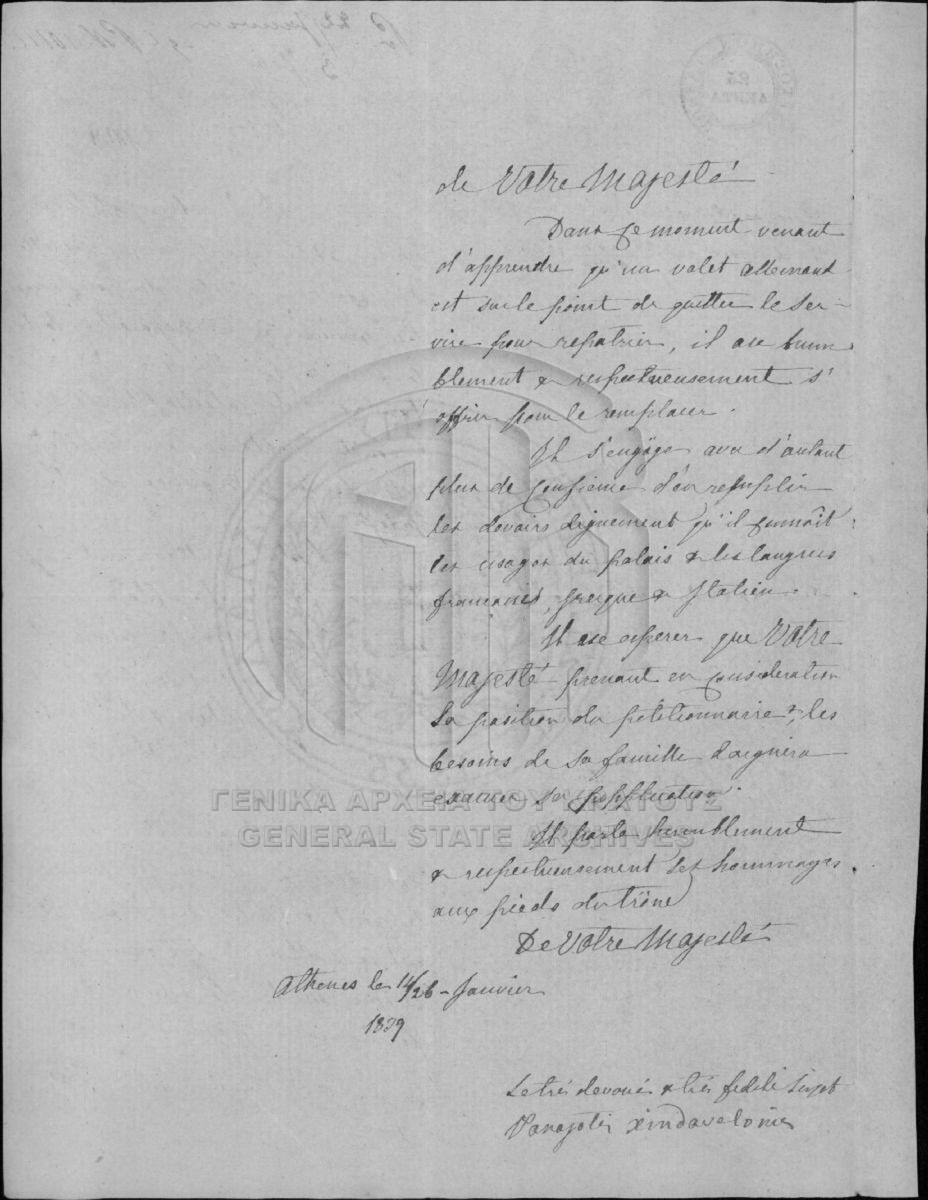 de Votre Majesté
Dans ce moment venant
d'apprendre qu'un valet allemand
est sur le point de quitter le ser-
vice pour repatrier, il ose humm
blement & respectueusement s'
offrir pour le remplacer.
Il s'engage avec d'autant
plus de confience d'en remplir
les devoirs dignement qu'il connâit
les usages du palais & les langues
francaises, grecque & Italien.
Il ose esperer que Votre
Majesté prenant en consideration
la position du petitionnaire &, les
besoins de sa famille daignera
exaucer sa
Il porte humblement
& respectueusement ses hommages
aux pieds du trône
De Votre Majesté
Athenes le 14/26 - Janvier
1839
Le trés devoué & trés fidéle Sujet
Panajotis
ΓΕΝΙΚΑ ΑΡΧΕΙΑ ΤΟΥ ΚΡΑΤΟΥΣ
GENERAL STATE ARCHIVES